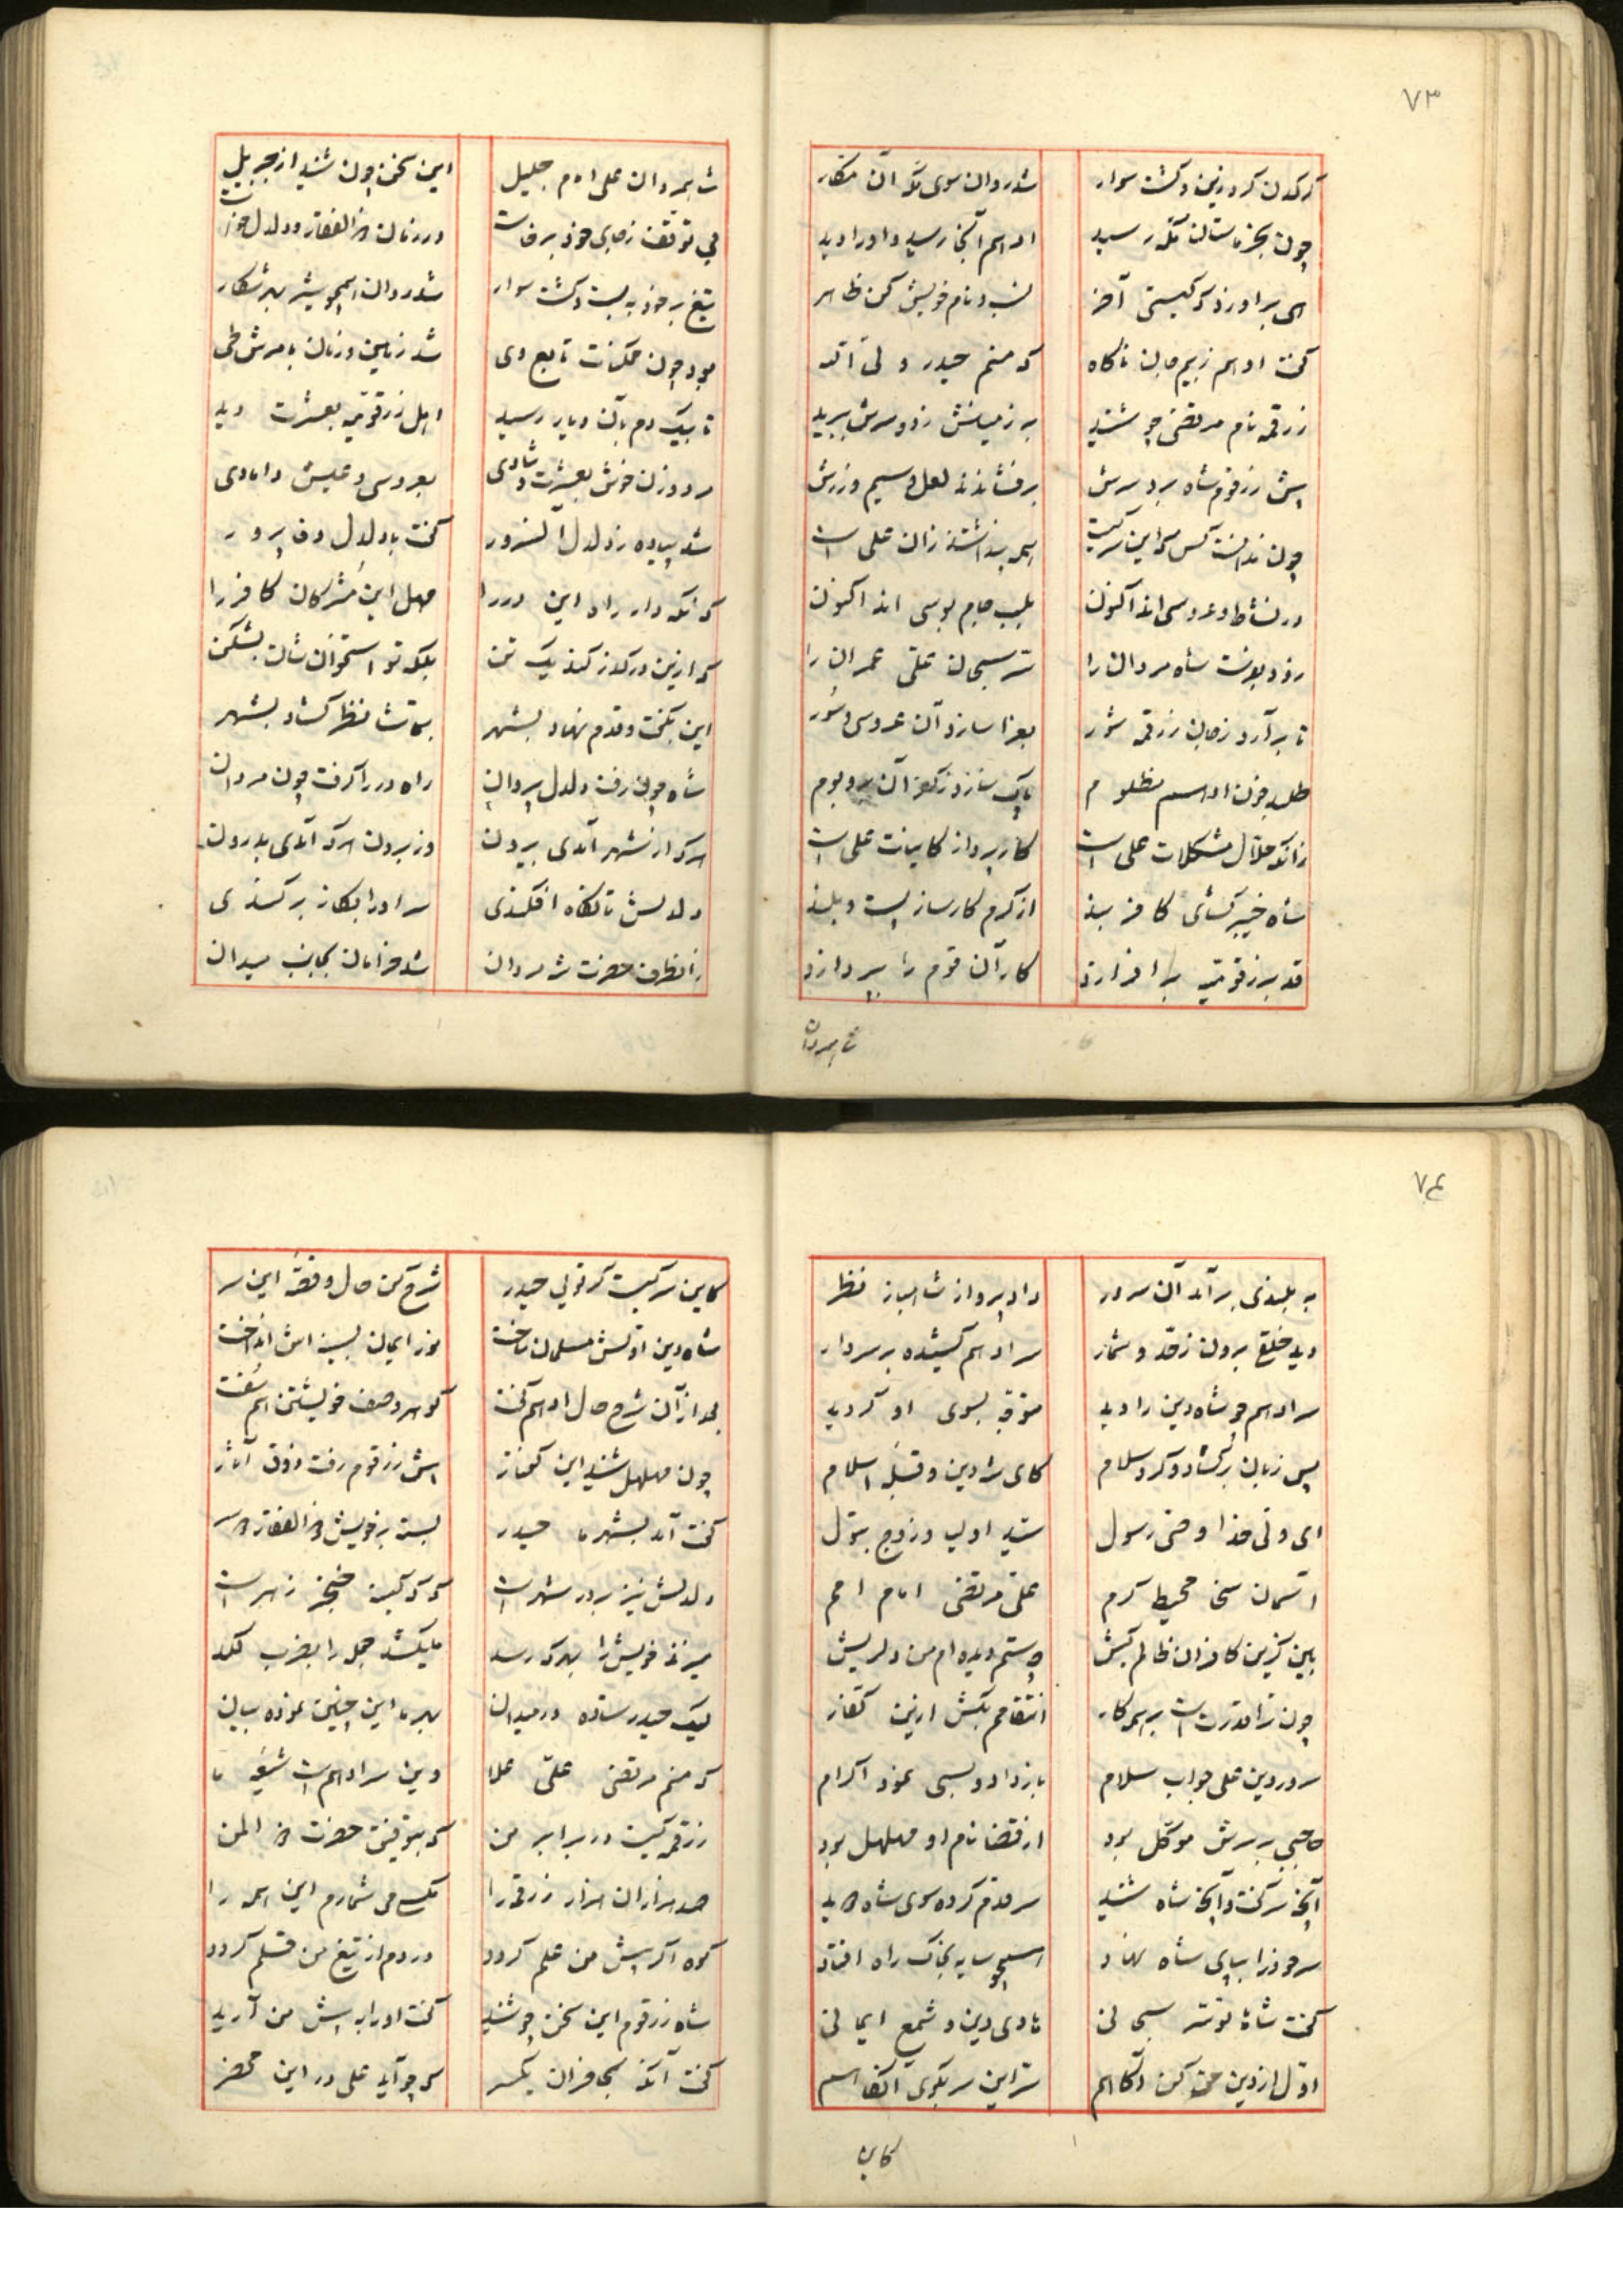 ۷۳
کرکدن کرد زین و گشت سوار شد روان سوی مکه آن مکار
چون بنخلستان مکه رسید ادهم آنجا رسید و او را دید
ای برادر تو کیستی آخر نسب و نام خویش کن ظاهر
گفت ادهم ز بیم جان ناگاه که منم حیدر ولی الله
زرقمه نام مرتضی چو شنید به زمینش زد و سرش ببرید
پیش زرقوم شاه برد سرش برفشاندند لعل و سیم و زرش
چون ندانست کس که این سر کیست همه پنداشتند زان علی است
در نشاط و عروسی اند اکنون بلب جام بوسی اند اکنون
زود بفرست شاه مردان را شیر سبحان علی عمران را
تا برآرد ز جان زرقمه شور بعزا سازد آن عروسی و سور
طلبد خون ادهم مظلوم پاک سازد ز کفر آن بر و بوم
زانکه حلال مشکلات علی است کار پرداز کاینات علی است
شاه خیبر گشای کافر بند از کرم کارساز پست و بلند
قد برزقومیه برافرازد کار آن قوم را بپردازد
شاه مردان
شاه مردان علی امام جلیل این سخن چون شنید از جبریل
بی توقف ز جای خود برخاست در زمان ذوالفقار و دلدل خواست
تیغ بر خود ببست و گشت سوار شد روان همچو شیر بهر شکار
بود چون ممکنات تابع وی شد زمین و زمان بامرش طی
تا بیک دم بآن دیار رسید اهل زرقومیه بعشرت دید
مرد و زن خوش بعشرت و شادی بعروسی و عیش و دامادی
شد پیاده ز دلدل آنسرور گفت با دلدل وفا پرور
که نگه دار راه این در را مهل این مشرکان کافر را
که ازین در گذر کند یک تن بلکه تو استخوان شان بشکن
این بگفت و قدم نهاد بشهر بتماشا نظر گشاد بشهر
شاه چون رفت دلدل پر دان راه در را گرفت چون مردان
هر که از شهر آمدی بیرون وز برون هر که آمدی بدرون
دلدلش ناگاه افکندی سر او را بکاز بر کندی
زانطرف حضرت شه مردان شد خرامان بجانب میدان
۷۴
به بلندی برآمد آن سرور داد پرواز شاهباز نظر
دید خلقی برون ز حد و شمار سر ادهم کشیده بر سر دار
سر ادهم چو شاه دین را دید متوجه بسوی او گردید
پس زبان برگشاد و کرد سلام کای شه دین و قبله اسلام
ای ولی خدا وصی رسول سید اولیا و زوج بتول
آسمان سخا محیط کرم علی مرتضی امام امم
بین کزین کافران ظالم کیش چه ستم دیده ام من دلریش
چون ترا قدرت است بر هر کار انتقامم بکش ازین کفار
سرور دین علی جواب سلام باز داد و بسی نمود اکرام
حاجبی بر سرش موکل بود از قضا نام او مهلهل بود
آنچه سر گفت و آنچه شاه شنید سر قدم کرده سوی شاه دوید
سر خود را بپای شاه نهاد همچو سایه بخاک راه افتاد
گفت شاها تو شیر سبحانی هادی دین و شمع ایمانی
اول از دین حق کن آگاهم سر این سر بگوی آنگاهم
کاین
کاین سر کیست گر تویی حیدر شرح کن حال و قصه این سر
شاه دین اولش مسلمان ساخت نور ایمان بسینه اش انداخت
بعد از آن شرح حال ادهم گفت گوهر وصف خویشتن هم سفت
چون مهلهل شنید این گفتار پیش زرقوم رفت ذوق آثار
گفت آمد بشهر ما حیدر بسته بر خویش ذوالفقار دو سر
دلدلش نیز بر در شهر است که گه کینه خنجر زهر است
میزند خویش را بهر که رسد میکشد جمله را بضرب لگد
لیک حیدر ستاده در میدان بهر ما این چنین نموده بیان
که منم مرتضی علی علا وین سر ادهم است شیعه ما
زرقمه کیست در برابر من که بتوفیق حضرت ذوالمن
صد هزاران هزار زرقمه را مگسی می شمارم این همه را
کوه اگر پیش من علم گردد در دم از تیغ من قلم گردد
شاه زرقوم این سخن چو شنید گفت او را به پیش من آرید
گفت آنگه بکافران یکسر که چو آید علی در این محضر